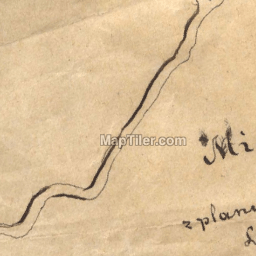 MapTiler.com
Mi
z planu